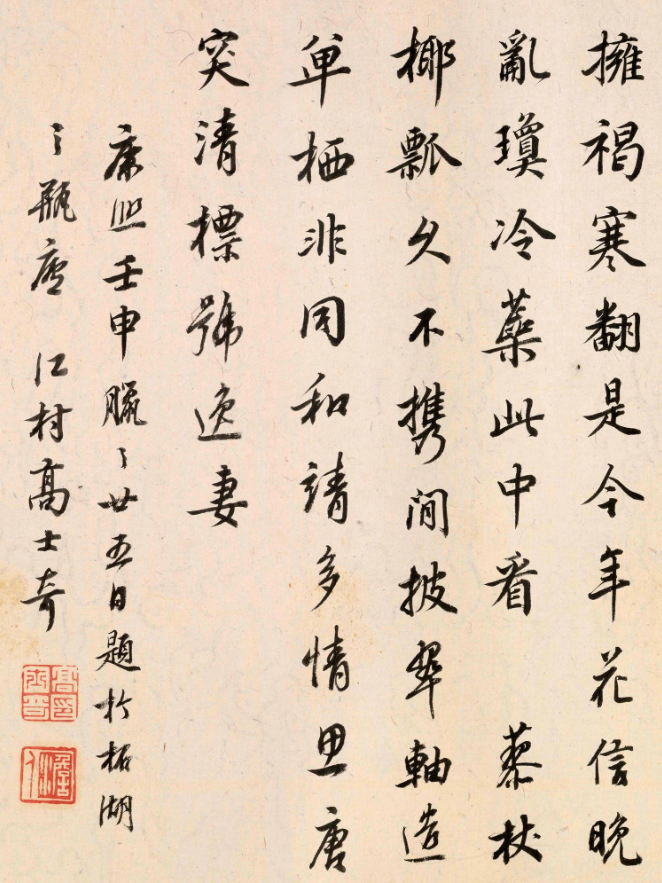 擁褐寒翻是今年花信晚
亂瓊冷蘂此中看 藜杖
椰瓢久不携閒披畢軸造
單栖非同和靖多情思唐
突清標號逸妻
康熙壬申臘〻廿五日題於柘湖
〻瓶廬 江村高士奇